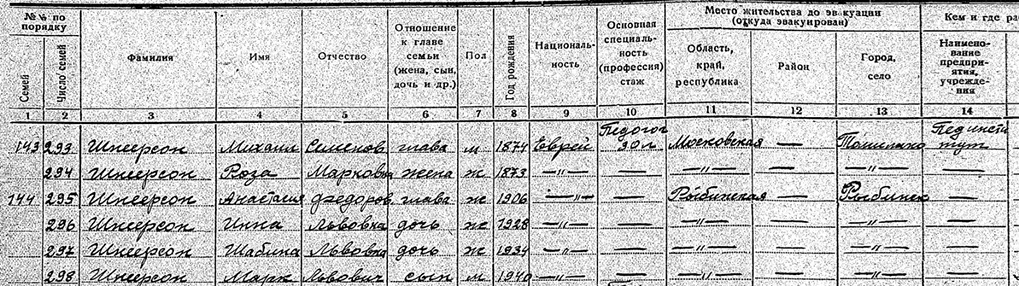 №№ по порядку Фамилия Имя Отчество Отношение к главе семьи (жена, сын, дочь и др.) Пол Год рождения Националь-ность Основная специаль-ность (профессия) стаж Место жительства до эвакуации (откуда эвакуирован) Кем и где ра
Семей Число семей Область, край, республика Район Город, село Наимено-вание предпри-ятия, учрежде-ния
1 2 3 4 5 6 7 8 9 10 11 12 13 14
143 293 Шнеерсон Михаил Семенов глава м 1874 Еврей Педогог 30 л Московская — Томилино Пединсти тут
294 Шнеерсон Роза Марковна жена ж 1873 —"— — —"— — —"— —
144 295 Шнеерсон Анастасия Федоров глава ж 1906 —"— — Рыбинская — Рыбинск —
296 Шнеерсон Инна Львовна дочь ж 1928 —"— — —"— — —"— —
297 Шнеерсон Шабина Львовна дочь ж 1934 —"— — —"— — —"— —
298 Шнеерсон Марк Львович сын м 1940 —"— — —"— — —"— —